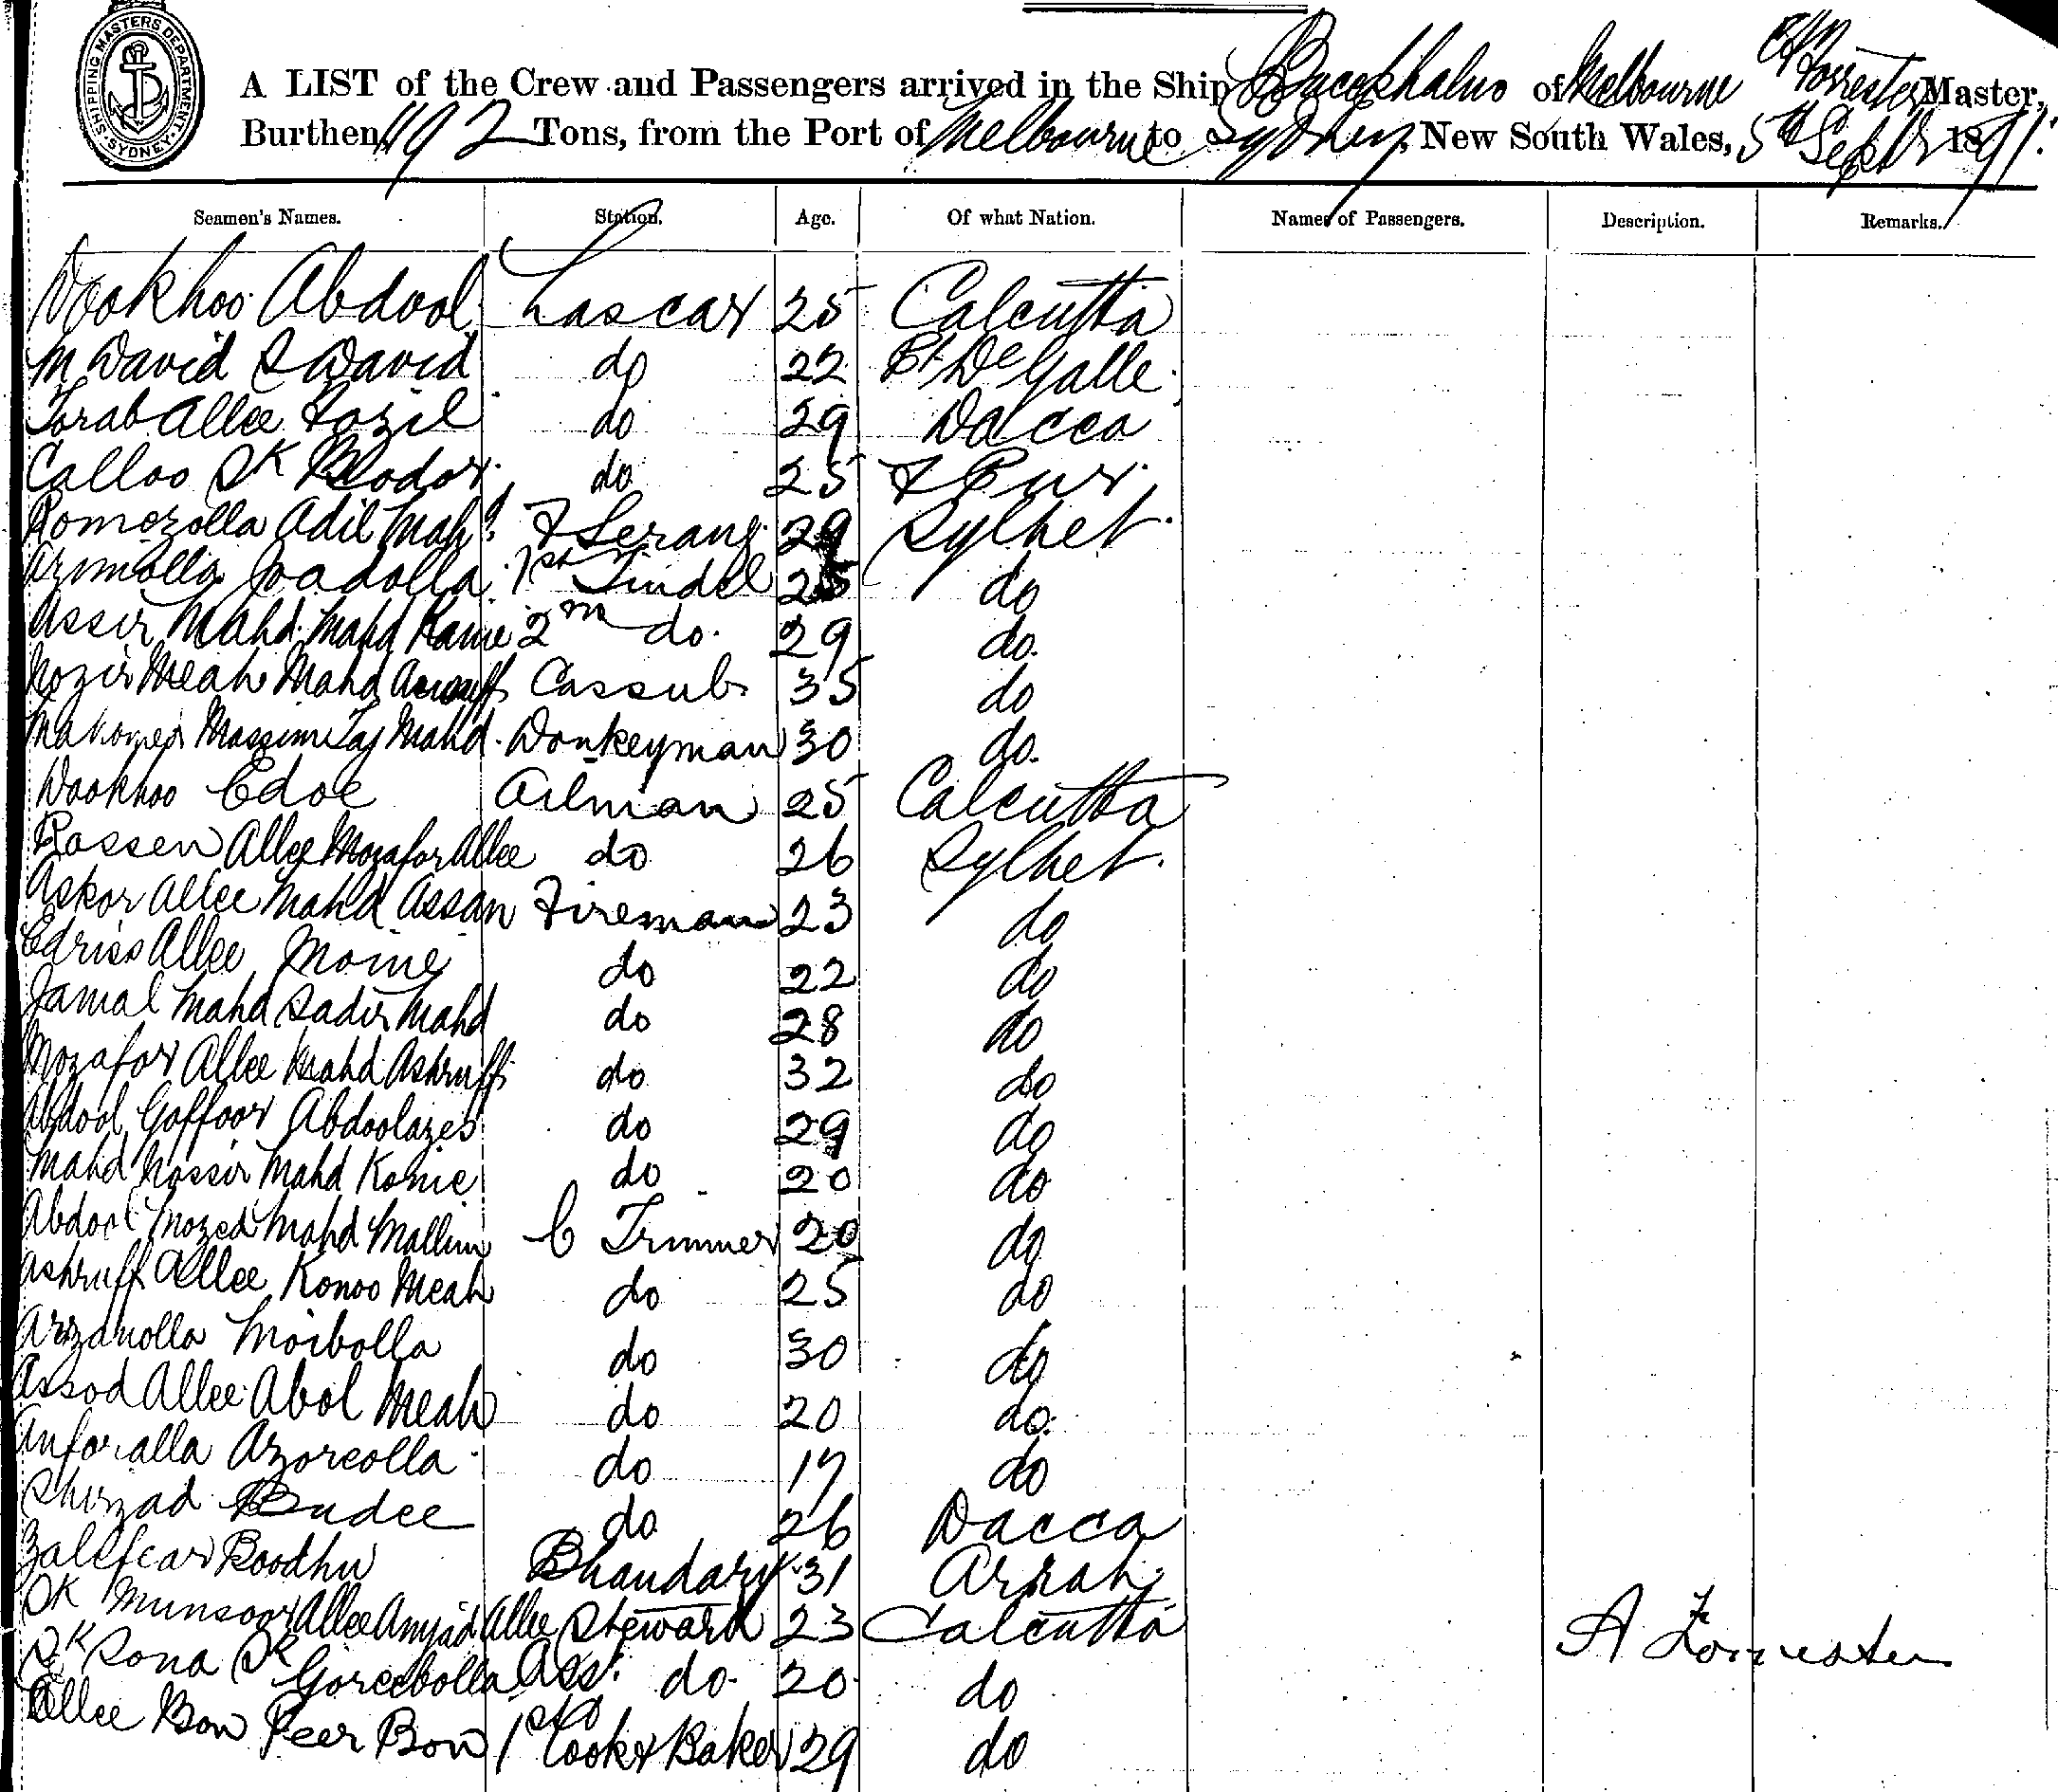 SHIPPING MASTERS DEPARTMENT SYDNEY
A LIST of the Crew and Passengers arrived in the Ship Bucephalus of Melbourne Forrester Master,
Burthen 1192 Tons, from the Port of Melbourne to Sydney, New South Wales, 5th Septbr 1891.
Seamen's Names. Station. Age. Of what Nation. Names of Passengers. Description. Remarks.
Dookhoo Abdool Lascar 25 Calcutta
M David S David do 22 Pt De Galle
Torab Allee Fozil do 29 Dacca
Calloo Sk Bodor do 25 F Pur
Romozolla Adil Mahd F Serang 29 Sylhet
Azimolla Joadolla 1st Tindel 25 do
Assir Mahd Mahd Kame 2nd do 29 do
Nozir Meah Mahd Cassub 35 do
Mahomed Massim Taj Mahd Donkeyman 30 do
Dookhoo Edoe Oilman 25 Calcutta
Rossen Allee Mozafor Allee do 26 Sylhet
Askor Allee Mahd Assan Fireman 23 do
Edriss Allee Mome do 22 do
Jamal Mahd Sadir Mahd do 28 do
Mozafor Allee Mahd Ashruff do 32 do
Abdool Goffoor Abdoolazes do 29 do
Mahd Nossir Mahd Konie do 20 do
Abdool Mozed Mahd Mallim C Trimmer 20 do
Ashruff Allee Konoo Meah do 25 do
Arzanolla Moibolla do 30 do
Assod Allee Abol Meah do 20 do
Anforalla Azoreolla do 17 do
Shirzad Budee do 26 Dacca
Zalefcar Boodhu Bhandary 31 Arrah
Sk Munsoor Allee Amjad Allee Steward 23 Calcutta
A Forrester
Sk Sona Sk Goreebolla Asst do 20 do
Allee Bow Peer Bow 1st Cook & Baker 29 do